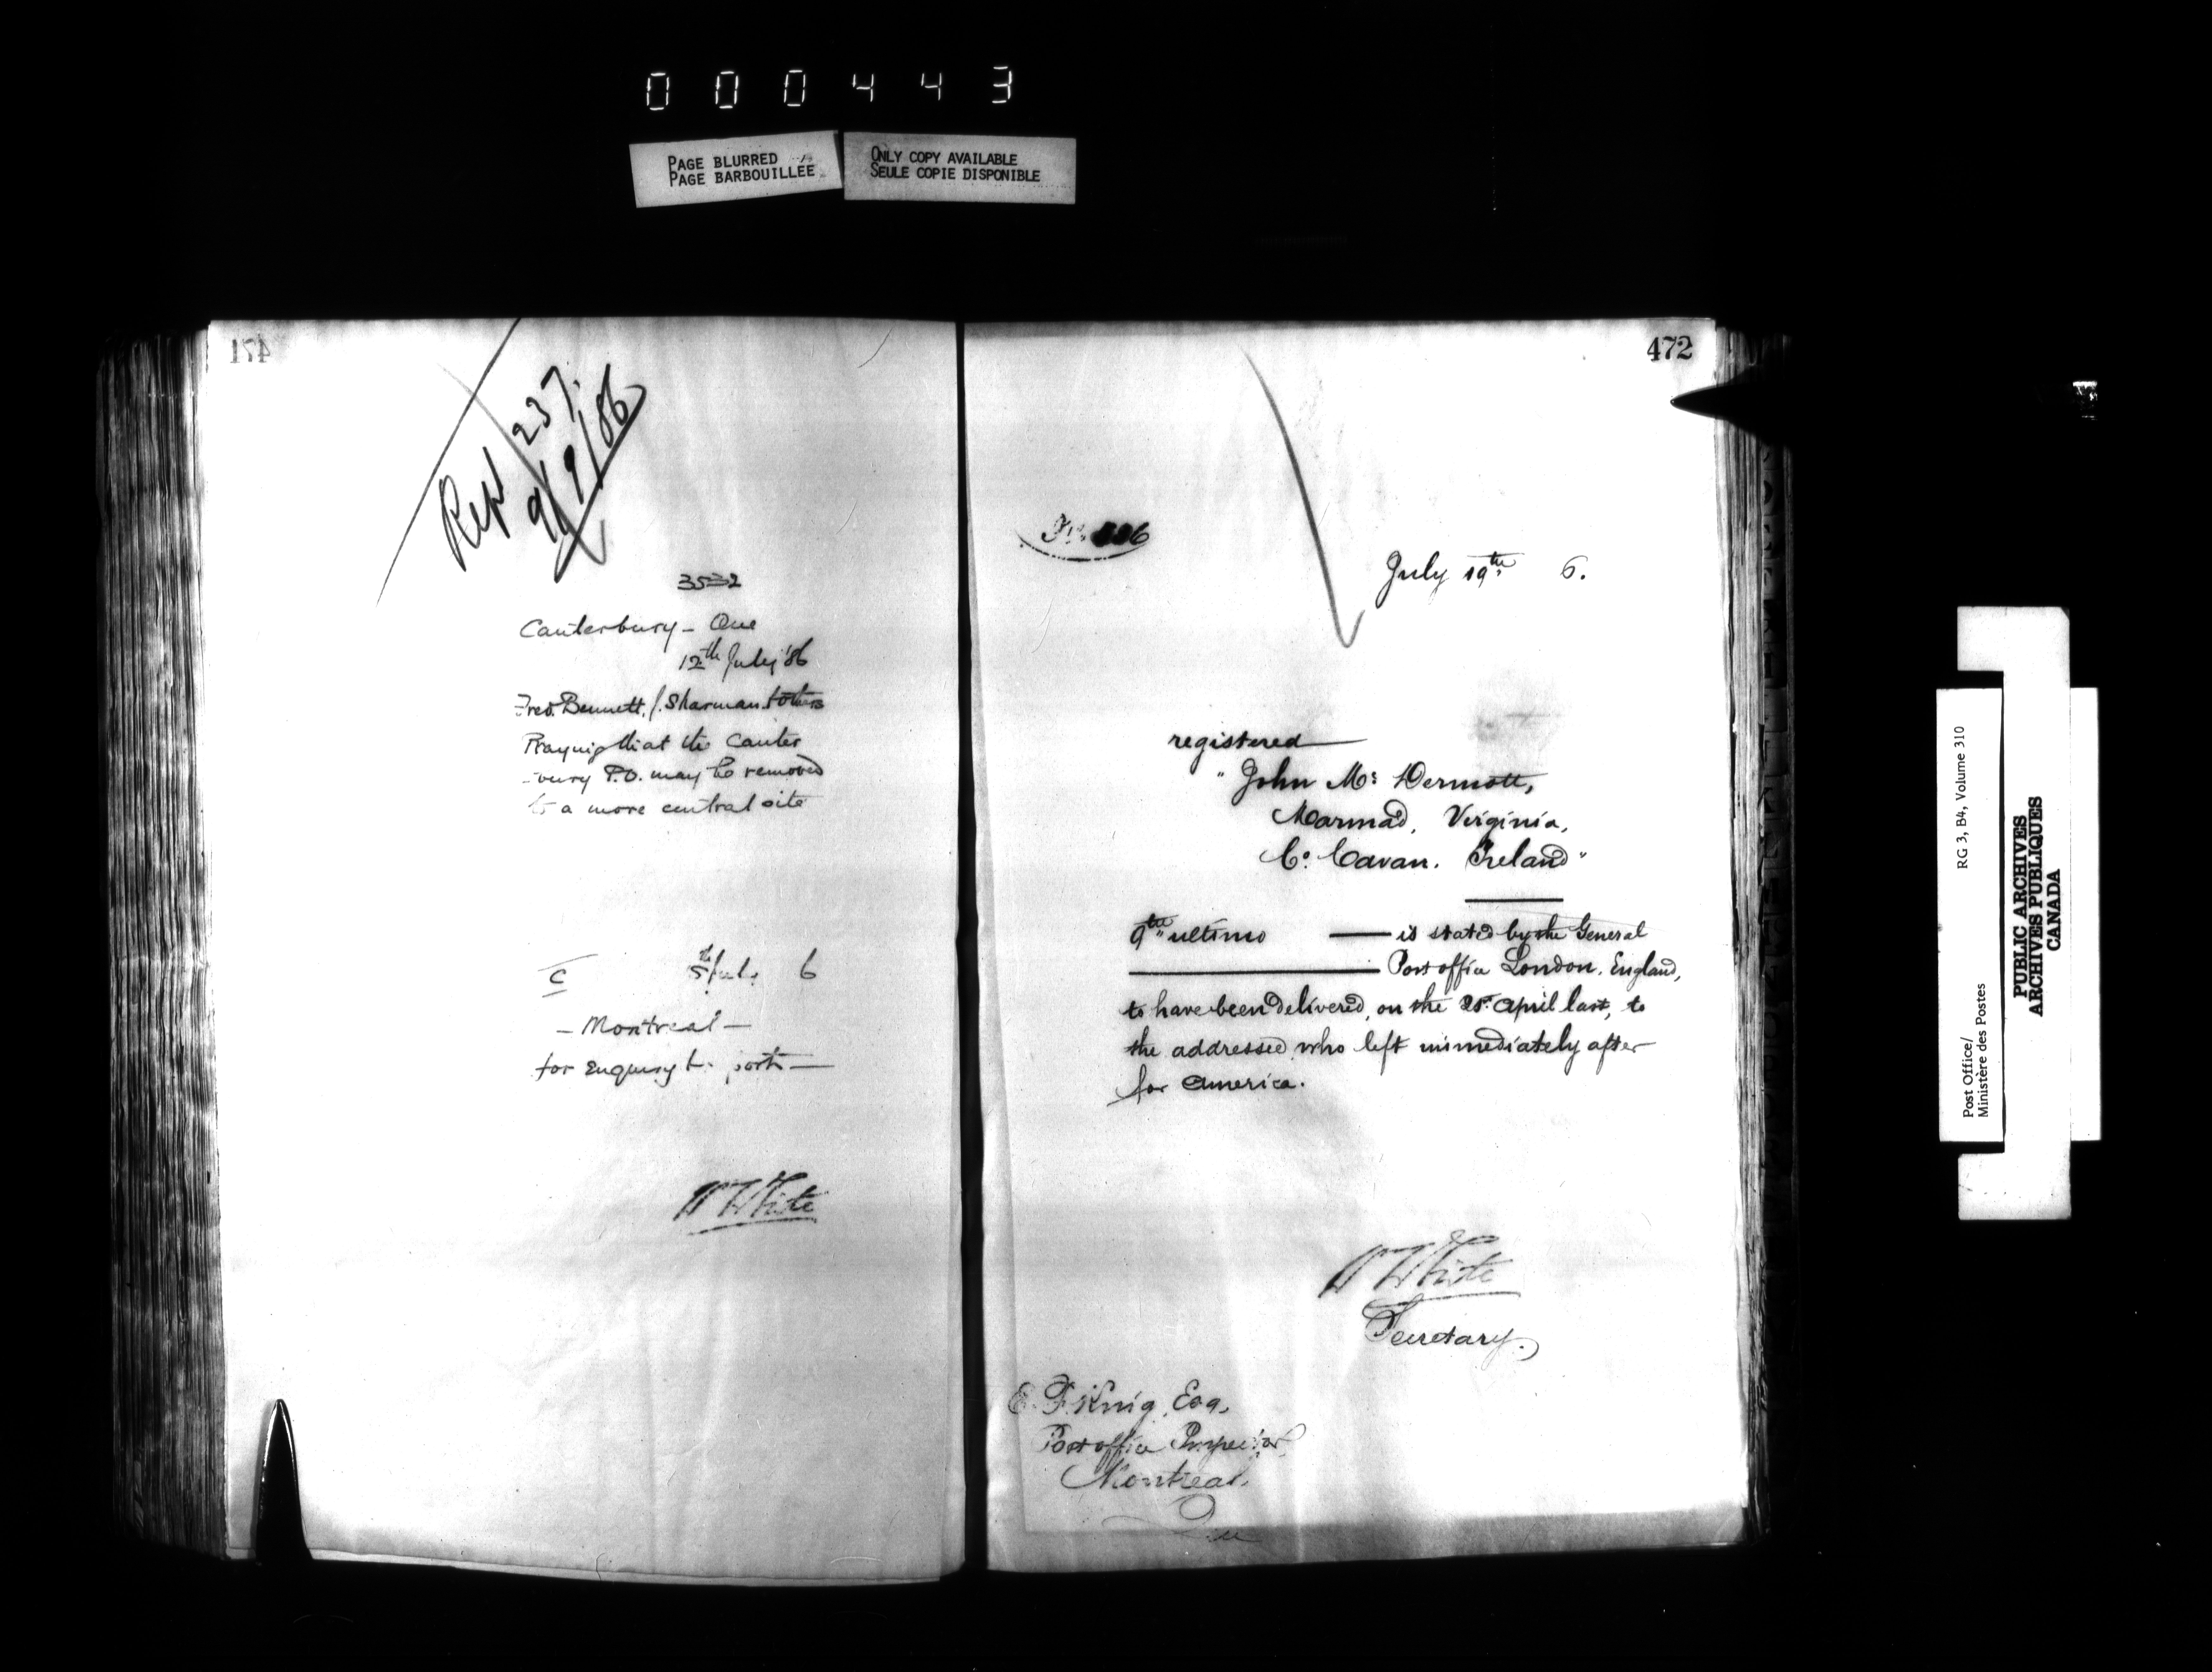 000443
PAGE BLURRED
PAGE BARBOUILLEE
ONLY COPY AVAILABLE
SEULE COPIE DISPONIBLE
471
Rept 237.
9/9/86
3532
Canterbury - Que
12th July '86
Fred. Bennett, J. Sharman & others
Praying that the Canter
-bury P.O. may be removed
to a more central site
C 6
- Montreal -
for Enquiry &
W White
472
July 19th 6.
registered
"John Mc Dermott,
Marmad, Virginia,
Co. Cavan. Ireland"
9th ultimo — is stated by the General
Post office London. England,
to have been delivered, on the April last, to
the addressee, who left immediately after
for America.
W White
Secretary.
E. F. King, Esq.
Post office Inspector,
Montreal.
Que
Post Office/
Ministère des Postes
RG 3, B4, Volume 310
PUBLIC ARCHIVES
ARCHIVES PUBLIQUES
CANADA